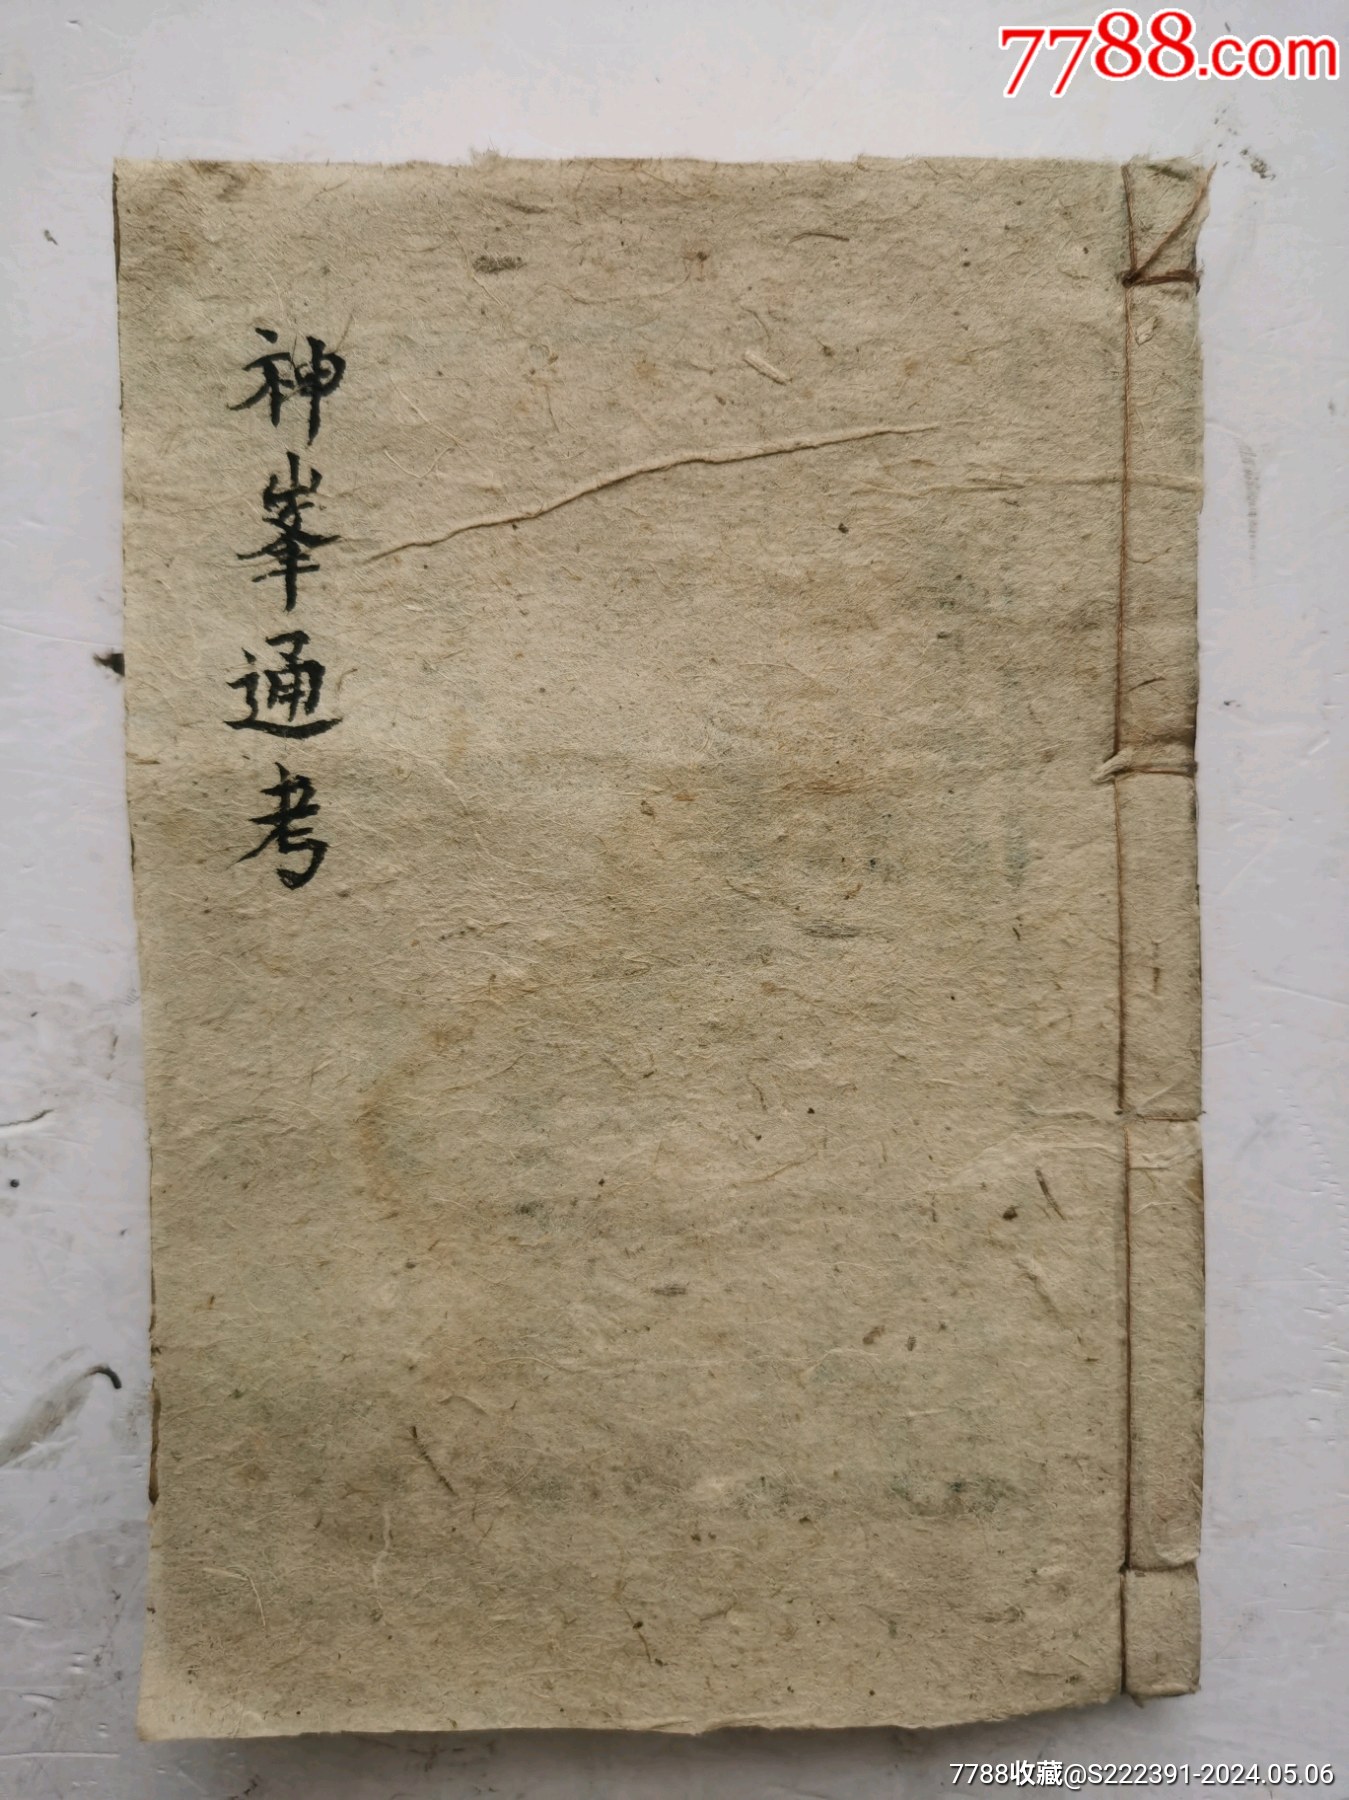 7788.com
神峯通考
7788收藏@S222391-2024.05.06